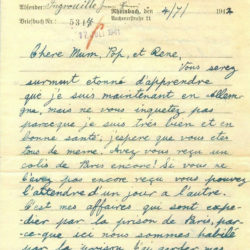 Absender:
Rheinbach, den 4/7/ 1942
Briefbuch Nr. 534
17 JULI 1941
Chere Mum, Pop, et Rene,
Vous serez
surment etonné d'apprendre
que je suis maintenant en Allema-
gne, mais ne vous inquetez pas
parceque je suis tres bien et en
bonne santé, j'espere que vous etes
tous de meme. Avez vous reçu un
colis de Paris encore? Si vous ne
l'avez pas encore reçu vous pouvez
l'attendre d'un jour a l'autre.
C'est mes affaires qui sont expe-
dier par la prison de Paris, par-
ce-que ici nous sommes habillé
par la